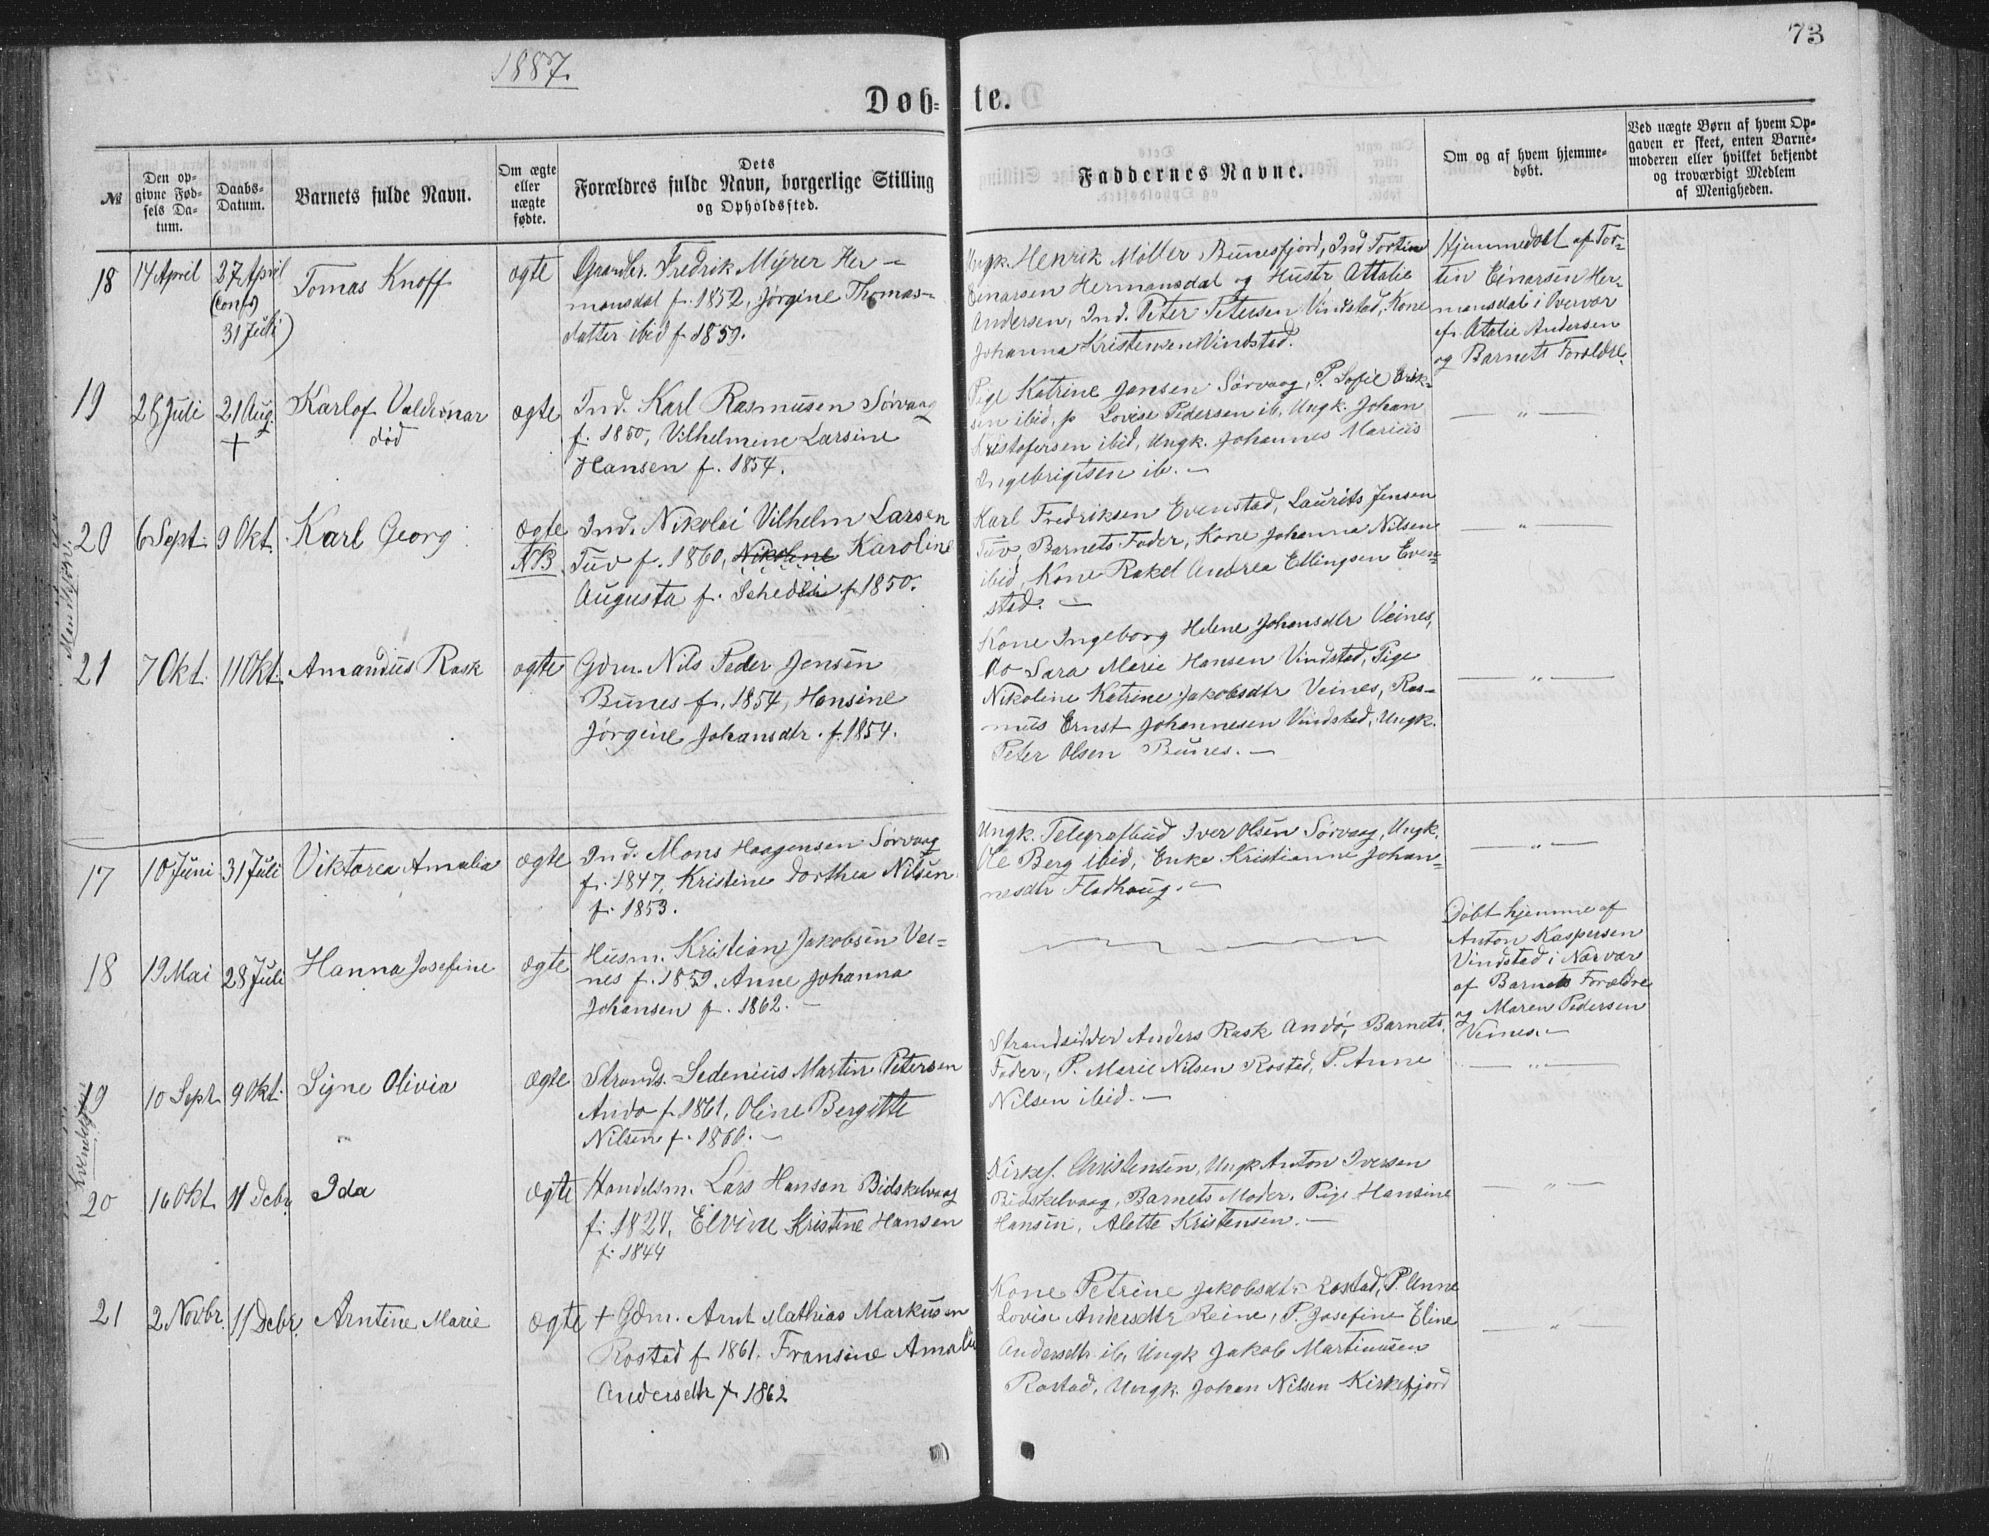 1887.
73
Døb-te.
№
Den opgivne Fødsels Datum.
Daabs-Datum.
Barnets fulde Navn.
Om ægte eller uægte fødte.
Dets Forældres fulde Navn, borgerlige Stilling og Opholdssted.
Faddernes Navne.
Om og af hvem hjemmedøbt.
Ved uægte Børn af hvem Opgaven er skeet, enten Barnemoderen eller hvilket bekjendt og troværdigt Medlem af Menigheden.
18
14 April
27 April
(conf.
31 Juli)
Tomas Knoff
ægte
Fredrik Myrer Her-
mansdal f. 1852, Jørgine Thomas-
datter ibid f. 1859.
Ungk. Henrik Møller Bunesfjord, Ind Tortin
Einarsen Hermansdal og Hustr Attalie
Andersen, Ind. Peter Petersen Vindstad, Kone
Johanna Kristensen Vindstad.
Hjemmedøbt af Tor-
tin Einarsen Her-
mansdal i Overvær
af Atalie Andersen
og Barnets Forældre.
19
21 Aug.
+
Karlof Valdemar
død
ægte
Ind. Karl Rasmusen Sørvaag
f. 1850, Vilhelmine Larsine
Hansen f. 1854.
Pige Katrine Jansen Sørvaag, P. Sofie Erik-
sen ibid, p Lovise Pedersen ib, Ungk. Johan
Kristofersen ibid, Ungk. Johannes Marius
Ingebrigtsen ib. —
— " —
20
6 Sept.
9 Okt.
Karl Georg
ægte
NB
Ind. Nikolai Vilhelm Larsen
Tuv f. 1860, Nikoline Karoline
Augusta f. f. 1850.
Karl Fredriksen Evenstad, Laurits Jensen
Tuv, Barnets Fader, Kone Johanna Nilsen
ibid, Kone Rakel Andrea Ellingsen Even-
stad. —
— " —
21
7 Okt.
11 Okt.
Amandus Rask
ægte
Gdm. Nils Peder Jensen
Bunes f. 1854, Hansine
Jørgine Johansdtr. f. 1854.
Kone Ingeborg Helene Johansdtr Veines,
do Sara Marie Hansen Vindstad, Pige
Nikoline Katrine Jakobsdtr Veines, Ras-
mus Ernst Johannesen Vindstad, Ungk.
Peter Olsen Bunes. —
— " —
17
10 Juni
31 Juli
Viktorea Amalia
ægte
Ind. Mons Haagensen Sørvaag
f. 1847, Kristine Dorthea Nilsen
f. 1853.
Ungk. Telegrafbud Iver Olsen Sørvaag, Ungk.
Ole Berg ibid, Enke Kristianne Johan-
nesdtr Fladhaug. —
— " —
18
19 Mai
28 Juli
Hanna Josefine
ægte
Husm. Kristian Jakobsen Vei-
nes f. 1859. Anne Johanna
Johansen f. 1862. —
Døbt hjemme af
Anton Kaspersen
Vindstad i Nærvær
af Barnets Forældre
og Maren Pedersen
Veines. —
19
10 Sept
9 Okt.
Signe Olivia
ægte
Strands. Sedenius Martin Petersen
Andø f. 1861, Oline Bergitte
Nilsen f. 1860. —
Strandsidder Anders Rask Andø, Barnets
Fader, P. Marie Nilsen Rostad, P. Anne
Nilsen ibid. —
— " —
20
16 Okt.
11 Debr.
Ida
ægte
Handelsm. Lars Hansen Bidskelvaag
f. 1827, Elvine Kristine Hansen
f. 1844
Kirkes. Christensen, Ungk Anton Iversen
Bidskelvaag, Barnets Moder, Pige Hansine
Hansen, Alette Kristensen. —
— " —
21
2 Novbr.
11 Debr.
Arntine Marie
ægte
+ Gdm. Arnt Mathias Markusen
Rostad f 1861. Fransine Amalia
Andersdtr f. 1862
Kone Petrine Jakobsdtr Rostad, P. Anne
Lovise Andersdtr Reine, P. Josefine Eline
Andersdtr ib, Ungk Jakob Martinusen
Rostad, Ungk. Johan Nilsen Kirkefjord
— " —